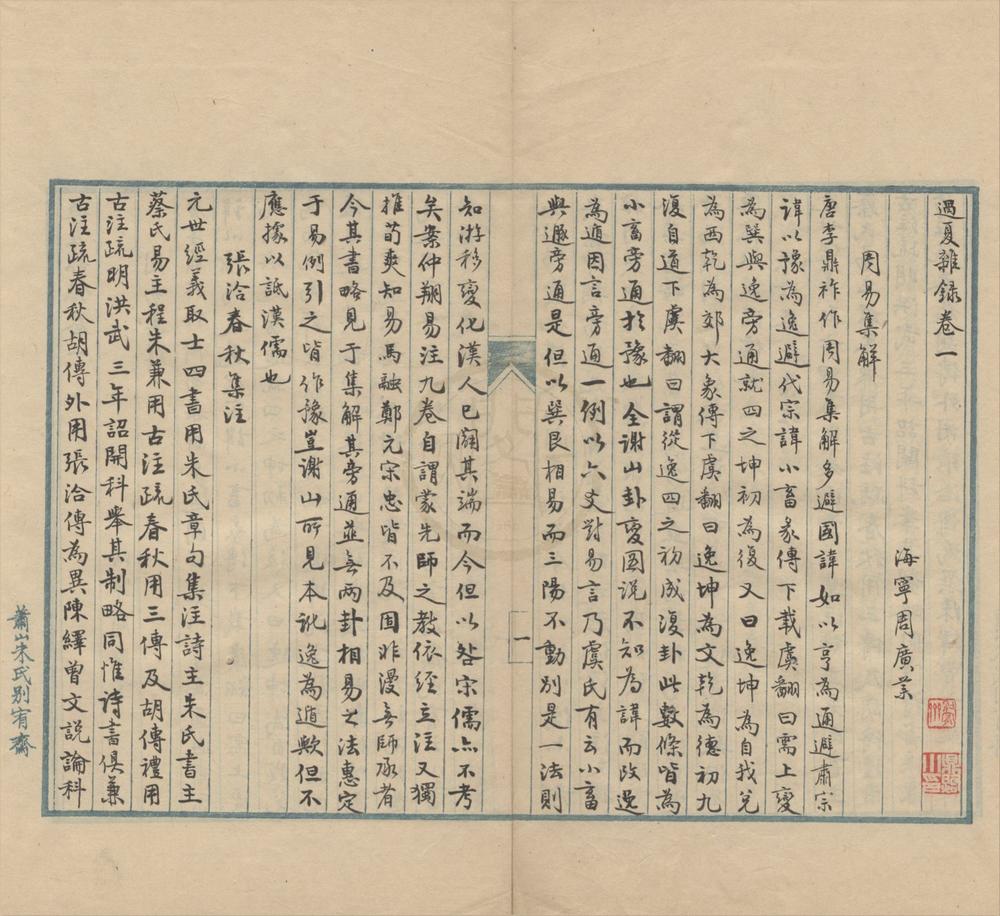 過夏雜錄卷一
海寧周廣業
周易集解
唐李鼎祚作周易集解多避國諱如以亨為通避肅宗
諱以豫為逸避代宗諱小畜彖傳下載虞翻曰需上變
為巽與逸旁通就四之坤初為復又曰逸坤為自我兌
為西乾為郊大象傳下虞翻曰逸坤為文乾為德初九
復自道下虞翻曰謂從逸四之初成復卦此數條皆為
小畜旁通於豫也全謝山卦變圖說不知為諱而改逸
為遁因言旁通一例以六爻對易言乃虞氏有云小畜
與遯旁通是但以巽艮相易而三陽不動別是一法則
知游移變化漢人已闢其端而今但以咎宋儒亦不考
矣案仲翔易注九卷自謂蒙先師之教依經立注又獨
推荀爽知易馬融鄭元宋忠皆不及固非漫無師承者
今其書略見于集解其旁通並無兩卦相易之法惠定
于易例引之皆作豫豈謝山所見本訛逸為遁歟但不
應據以詆漢儒也
張洽春秋集注
元世經義取士四書用朱氏章句集注詩主朱氏書主
蔡氏易主程朱兼用古注疏春秋用三傳及胡傳禮用
古注疏明洪武三年詔開科舉其制略同惟詩書俱兼
古注疏春秋胡傳外用張洽傳為異陳繹曾文說論科
一
蕭山朱氏別宥齋